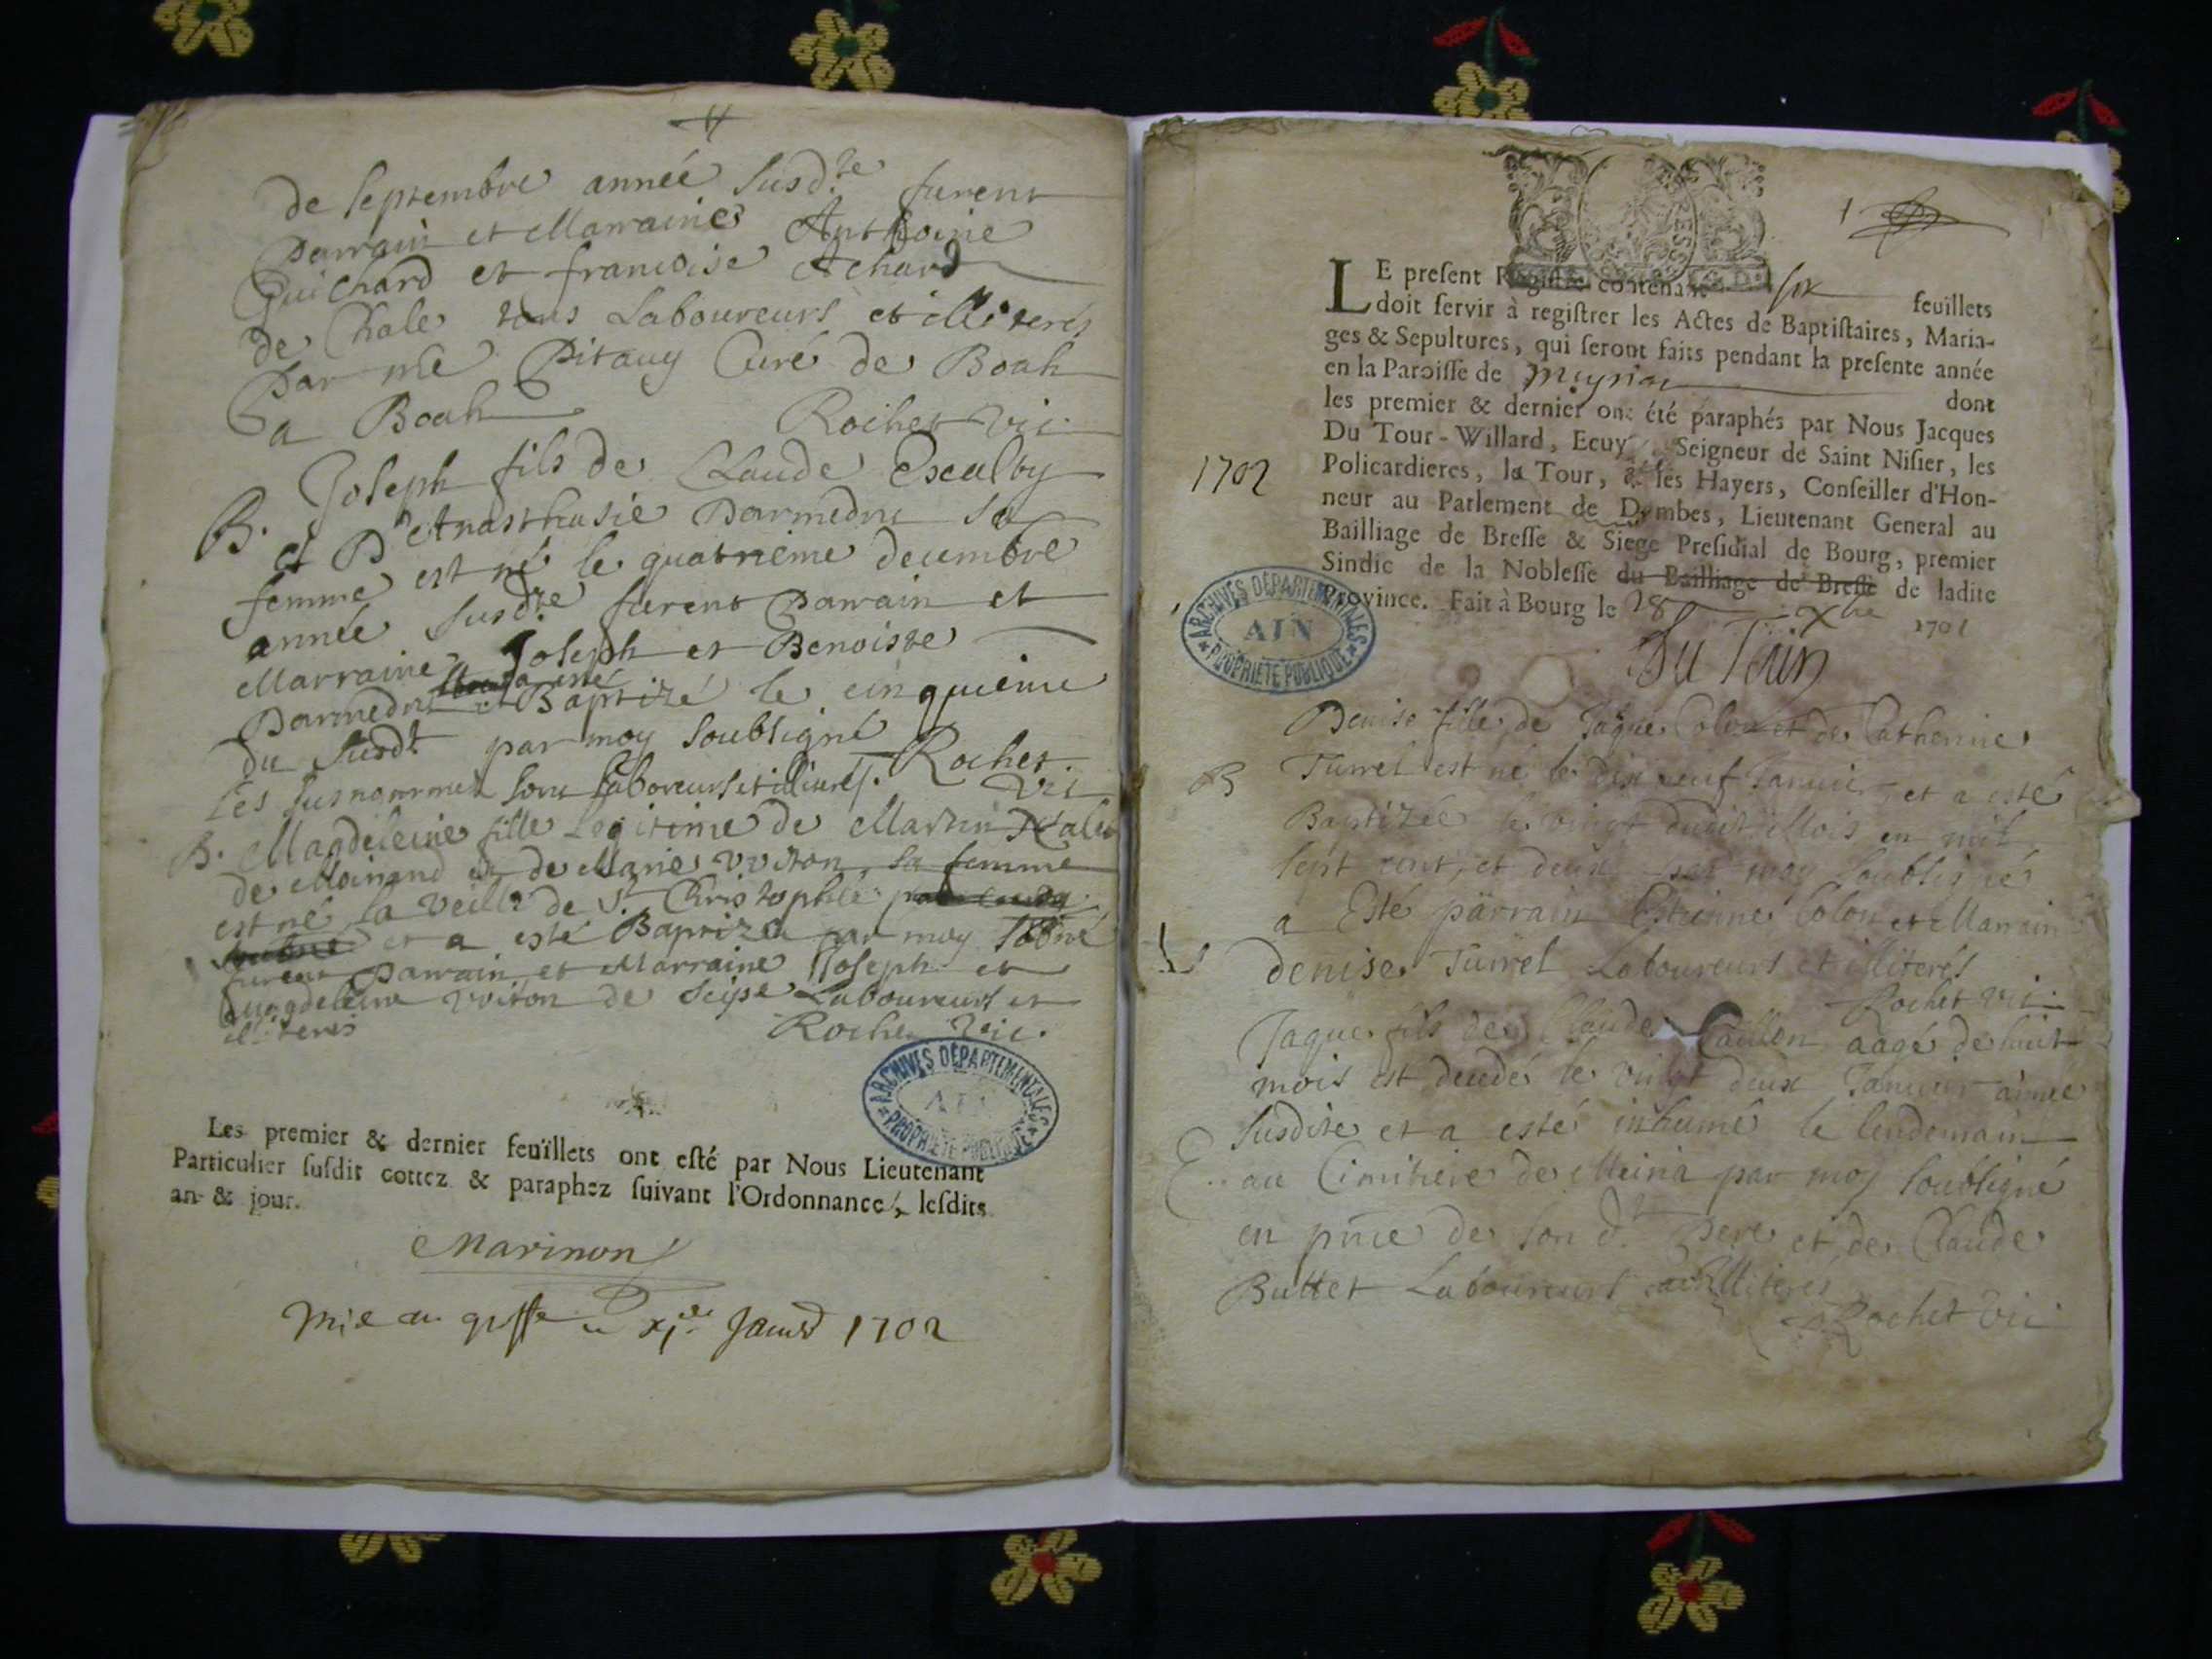 de Septembre année Susd.te furent
parrain et Marraine Anthoine
Guichard et francoise Achard
de Chale tous Laboureurs et illiterés
par me Pitauy Curé de Boah
a Boah Rochet vic.
B. Joseph fils de Claude Escalby
et D Anasthasie Darmedru sa
femme est né le quatrieme decembre
année susd.te furent parrain et
Marraine Joseph et Benoiste
Darmedru a esté Baptizé le cinquieme
du susd.t par moy soubsigné Rochet
les susnommés sont laboureurs et illiterés. vic
B. Magdeleine fille Legitime de Martin
de Moinand et de Marie voiton sa femme
est né la veille de S.t Christophle
et a esté Baptizée par moy
furent parrain et Marraine Joseph et
Magdeleine voiton de Laboureurs et
illiterés Rochet vic.
ARCHIVES DÉPARTEMENTALES
AIN
PROPRIÉTÉ PUBLIQUE
Les premier & dernier feüillets ont esté par Nous Lieutenant
Particulier susdit cottez & paraphez suivant l'Ordonnance, lesdits
an & jour.
Marinon
Mis au greffe le xj.e Janv 1702
1
LE present Registre contenant six feüillets
doit servir à registrer les Actes de Baptistaires, Maria-
ges & Sepultures, qui seront faits pendant la presente année
en la Paroisse de dont
les premier & dernier ont été paraphés par Nous Jacques
Du Tour-Willard, Ecuy Seigneur de Saint Nisier, les
1702
Policardieres, la Tour, & les Hayers, Conseiller d'Hon-
neur au Parlement de Dombes, Lieutenant General au
Bailliage de Bresse & Siege Presidial de Bourg, premier
Sindic de la Noblesse du Bailliage de Bresse de ladite
Province. Fait à Bourg le 28 xbre 1701
ARCHIVES DÉPARTEMENTALES
AIN
PROPRIÉTÉ PUBLIQUE
Du Tour
Denise fille de Jaque Colon et de Catherine
B Turrel est né le dix neuf Janvier et a esté
Baptizée le vingt dudit Mois en mil
sept cent et deux par moy soubsigné
a Esté parrain Estienne Colon et Marraine
denise Turrel Laboureurs et illiterés
Rochet vic.
Jaque fils de Claude Caillon aagé de huit
mois est decedé le vingt deux Janvier année
susdite et a esté inhumé le lendemain
E. au Cimitiere de Meiria par moy soubsigné
en pnce de son d.t Pere et de Claude
Buttet Laboureurs illiterés
Rochet vic